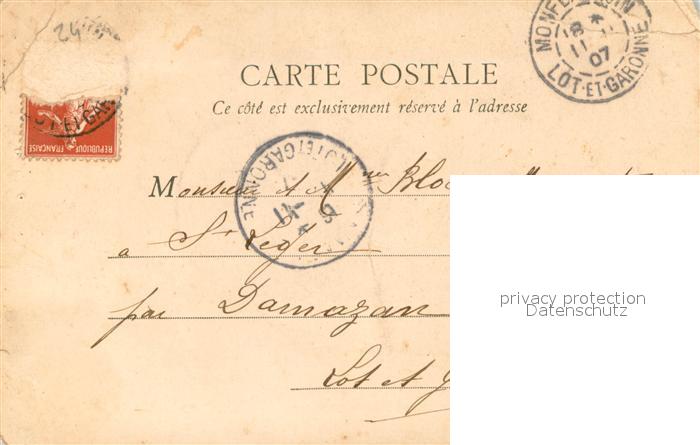 24
MONFLANQUIN
8 *
11
07
LOT-ET-GARONNE
CARTE POSTALE
Ce côté est exclusivement réservé à l'adresse
REPUBLIQUE FRANÇAISE
LOT ET GARONNE
8 - 11
*
Monsieur et Mme Bloc
a St Léger
par Damazan
Lot et G
privacy protection
Datenschutz